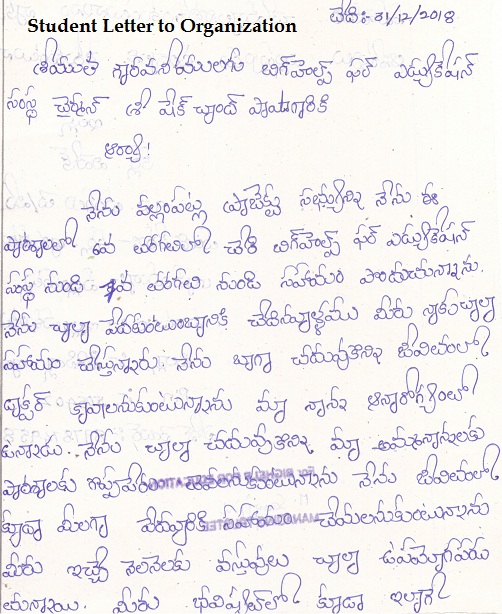 తేది:- 31/12/2018
Student Letter to Organization
శ్రీయుత గౌరవనీయులగు బిగ్‌హెల్ప్ ఫర్ ఎడ్యుకేషన్
సంస్థ చైర్మన్ శ్రీ షేక్ చాంద్ పాషాగారికి
ఆర్యా!
నేను పల్లంపట్ల ప్రాజెక్టు సభ్యున్ని నేను ఈ
పాఠశాలలో 6వ తరగతిలో చేరి బిగ్‌హెల్ప్ ఫర్ ఎడ్యుకేషన్
సంస్థ నుండి 7వ తరగతి నుండి సహాయం పొందుచున్నాను.
నేను చాలా పేదకుటుంబానికి చెందినవాళ్ళము మీరు నాకు చాలా
సహాయం చేస్తున్నారు నేను బాగా చదువుకొని జీవితంలో
డాక్టర్ కావాలనుకుంటున్నాను మా నాన్న అనారోగ్యంలో
ఉన్నాడు. నేను చాలా చదువుకొని మా అమ్మానాన్నలకు
పాఠశాలకు గొప్పపేరు నేను జీవితంలో
కూడా మీలాగా పేదవారికి సహాయం చేయాలనుకుంటున్నాను
మీరు ఇచ్చే నెలనెలకు వస్తువులు చాలా ఉపయోగపడు
చున్నాయి. మీరు భవిష్యత్‌లో కూడా ఇలాగే